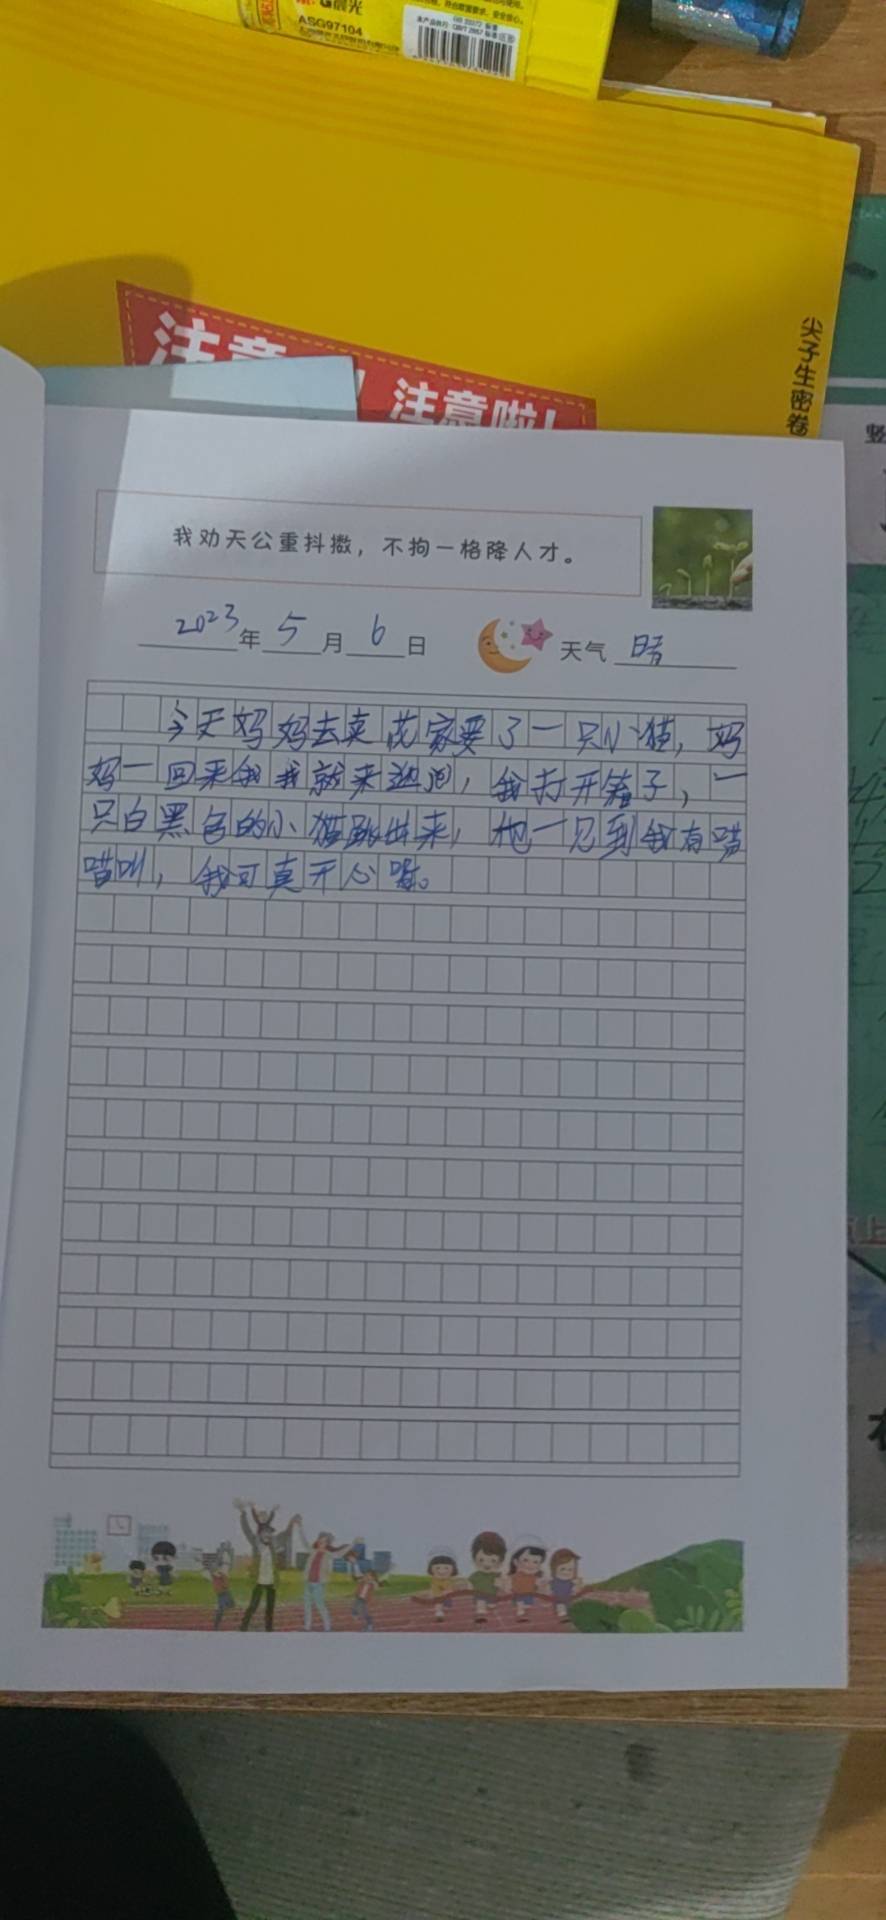 晨光
ASG97104
尖子生密卷
注意
注意啦！
竖
我劝天公重抖擞，不拘一格降人才。
2023年5月6日 天气 晴
今天妈妈去卖花家要了一只小猫，妈
妈一回来我我就来迎迥，我打开箱子，一
只白黑色的小猫跳出来，他一见到我有喵
喵叫，我可真开心呀。